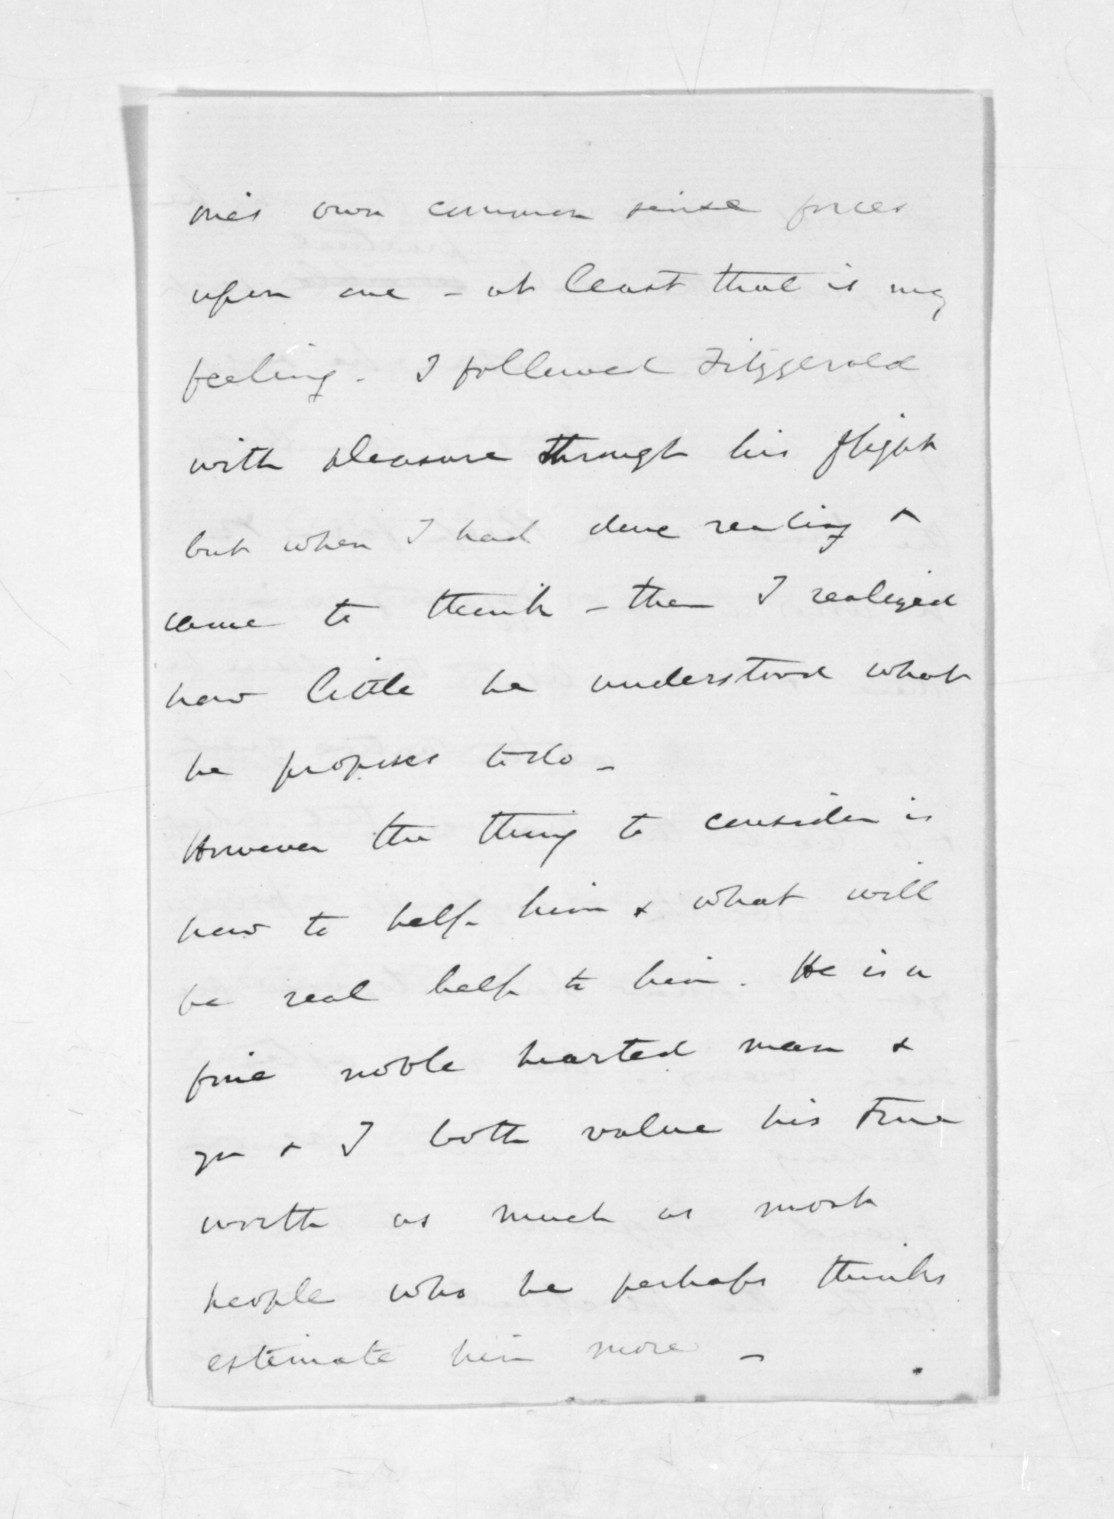 one's own common sense forces
upon one - at least that is my
feeling - I followed Fitzgerald
with pleasure through his flight
but when I had done reading &
came to think - then I realized
how little he understood what
he proposes to do -
However the thing to consider is
how to help him & what will
be real help to him. He is a
fine noble hearted man &
you & I both value his true
worth as much as most
people who he perhaps thinks
estimate him more -